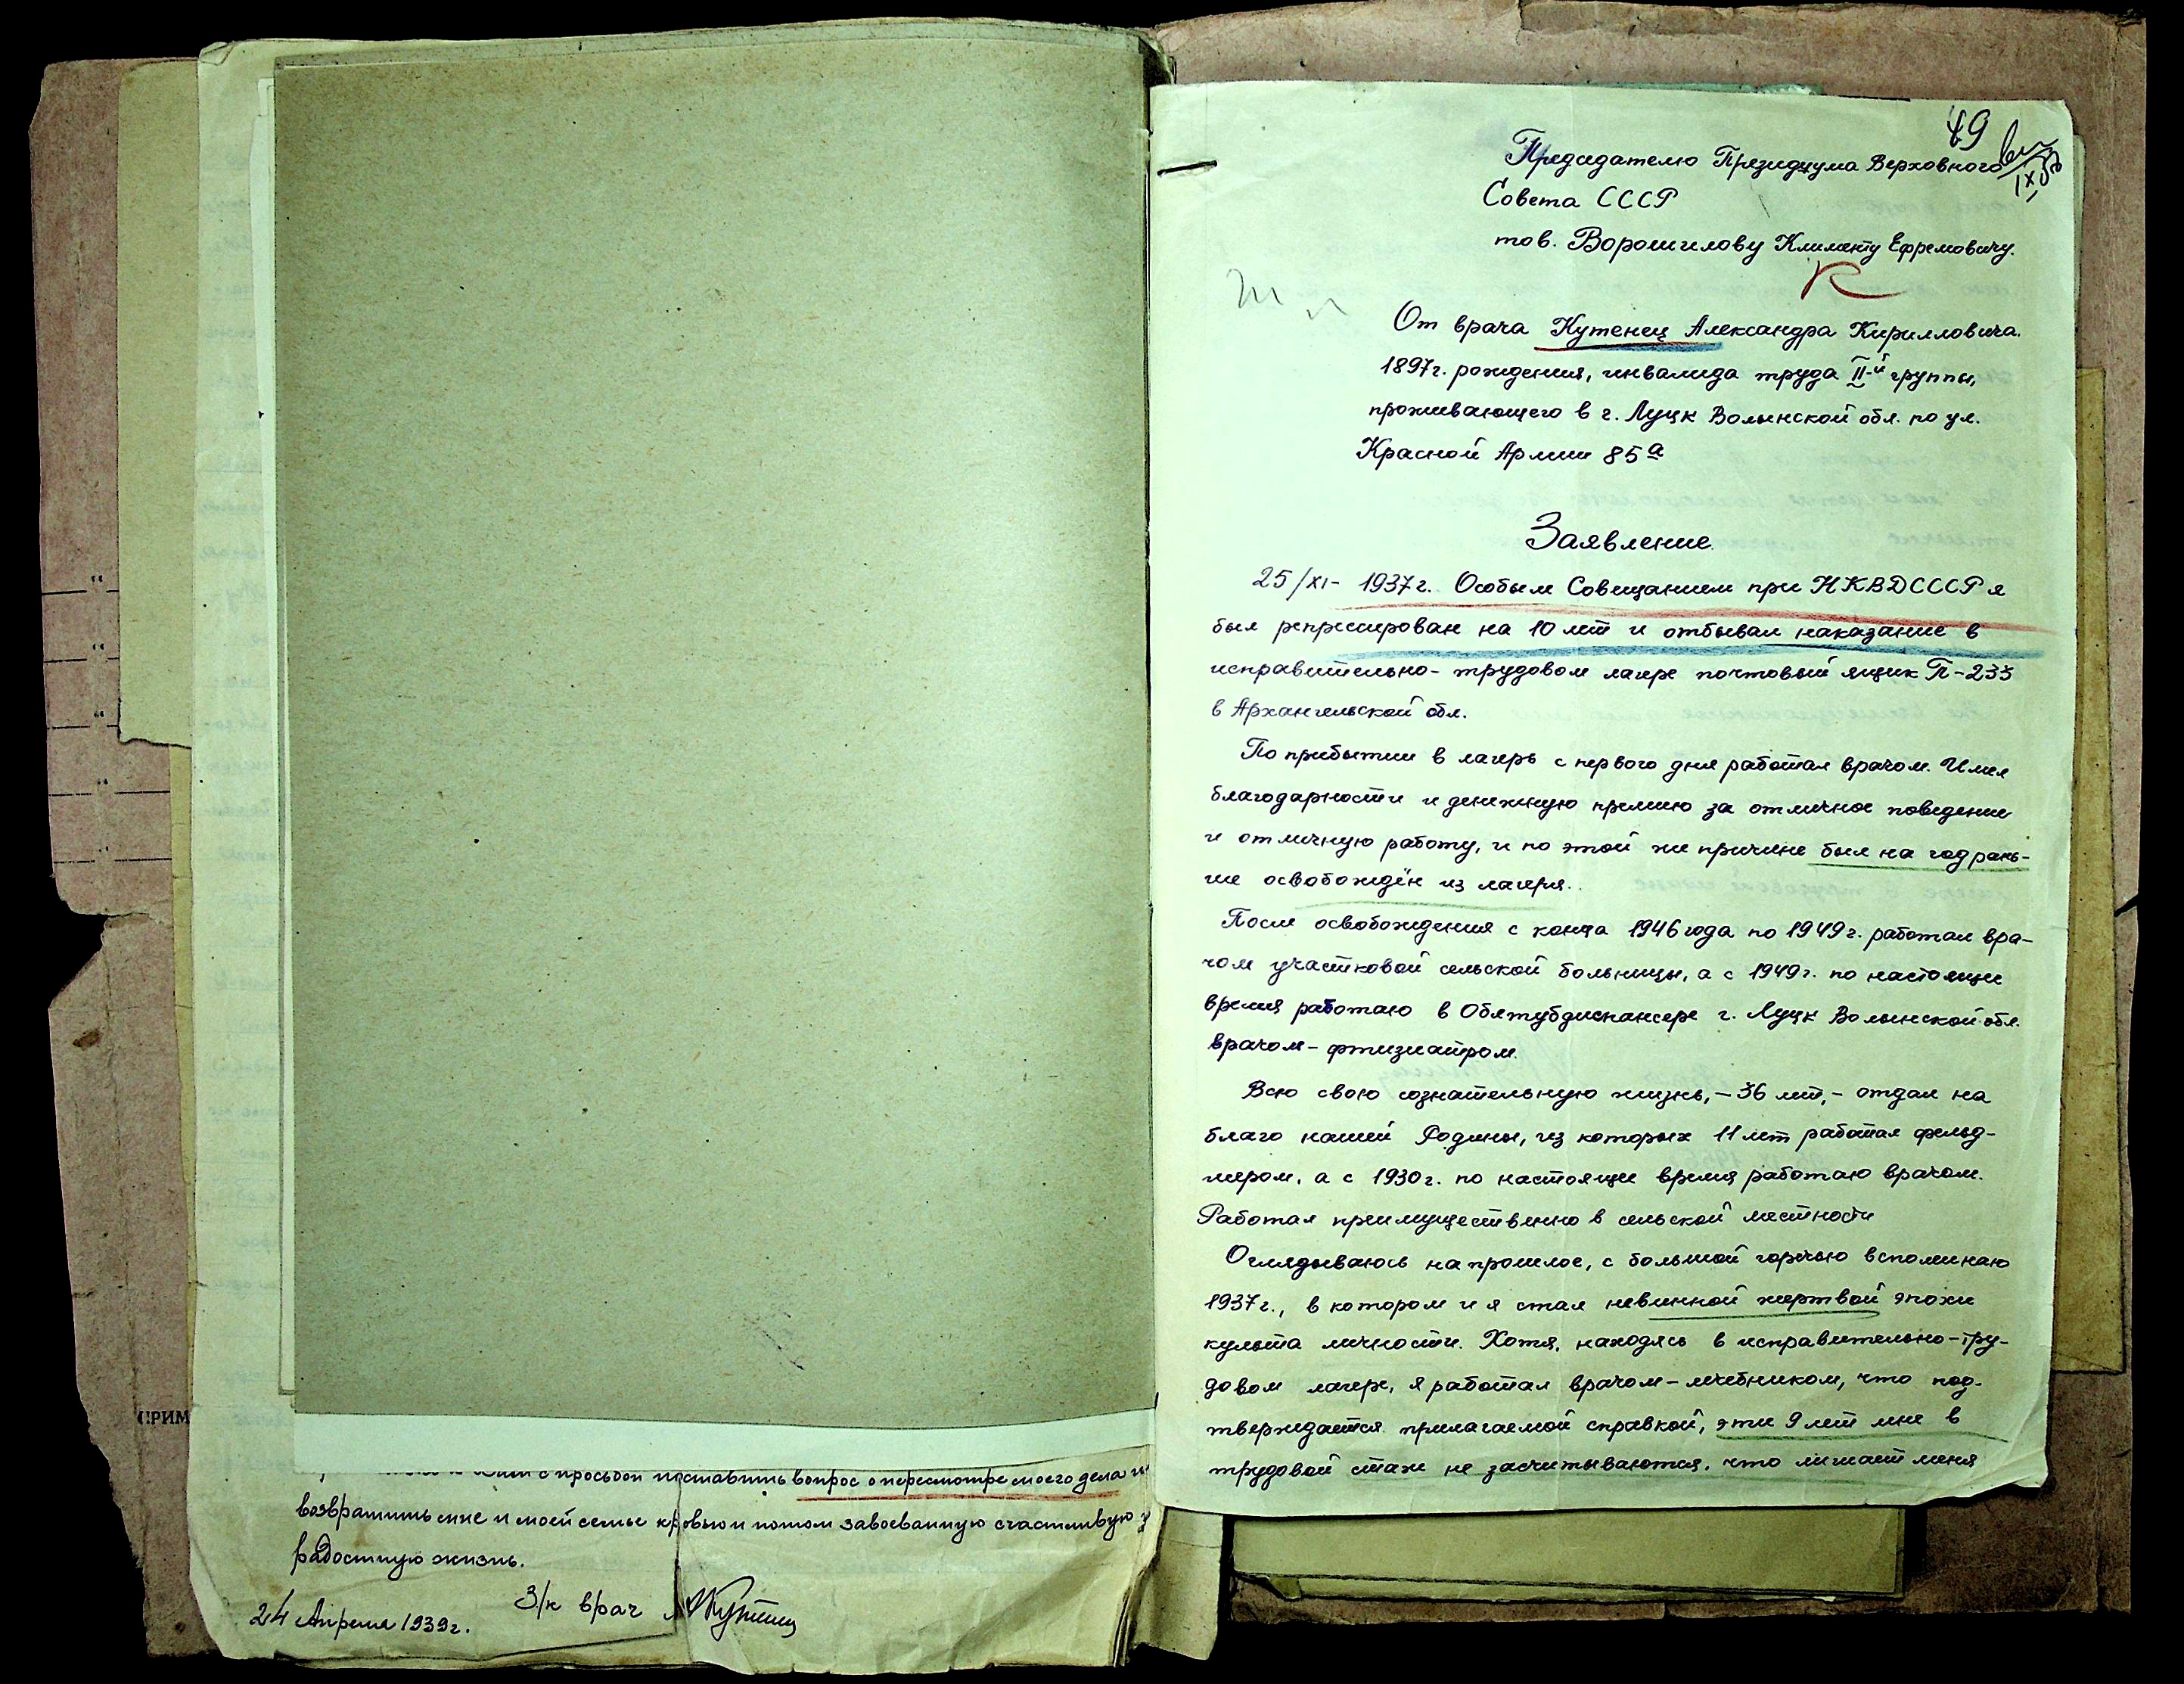 СПРИМ
просьбой поставить вопрос о пересмотре моего дела и
возвратить мне и моей семье кровью и потом завоеванную счастливую и
радостную жизнь.
З/к врач
24 Апреля 1939г.
49
Председателю Президиума Верховного
Совета СССР
тов. Ворошилову Клименту Ефремовичу.
От врача Кутенец Александра Кирилловича.
1897г. рождения, инвалида труда II-й группы,
проживающего в г. Луцк Волынской обл. по ул.
Красной Армии 85а
Заявление.
25/XI- 1937г. Особым Совещанием при НКВД СССР я
был репрессирован на 10 лет и отбывал наказание в
исправительно-трудовом лагере почтовый ящик П-233
в Архангельской обл.
По прибытии в лагерь с первого дня работал врачом. Имел
благодарности и денежную премию за отличное поведение
и отличную работу, и по этой же причине был на год рань-
ше освобождён из лагеря.
После освобождения с конца 1946 года по 1949г. работал вра-
чом участковой сельской больницы, а с 1949г. по настоящее
время работаю в Облтубдиспансере г. Луцк Волынской обл.
врачом-фтизиатром.
Всю свою сознательную жизнь,-36 лет,- отдал на
благо нашей Родины, из которых 11 лет работал фельд-
шером, а с 1930г. по настоящее время работаю врачом.
Работал преимущественно в сельской местности
Оглядываюсь на прошлое, с большой горечью вспоминаю
1937г., в котором и я стал невинной жертвой эпохи
культа личности. Хотя, находясь в исправительно-тру-
довом лагере, я работал врачом-лечебником, что под-
тверждается прилагаемой справкой, эти 9 лет мне в
трудовой стаж не засчитываются, что лишает меня